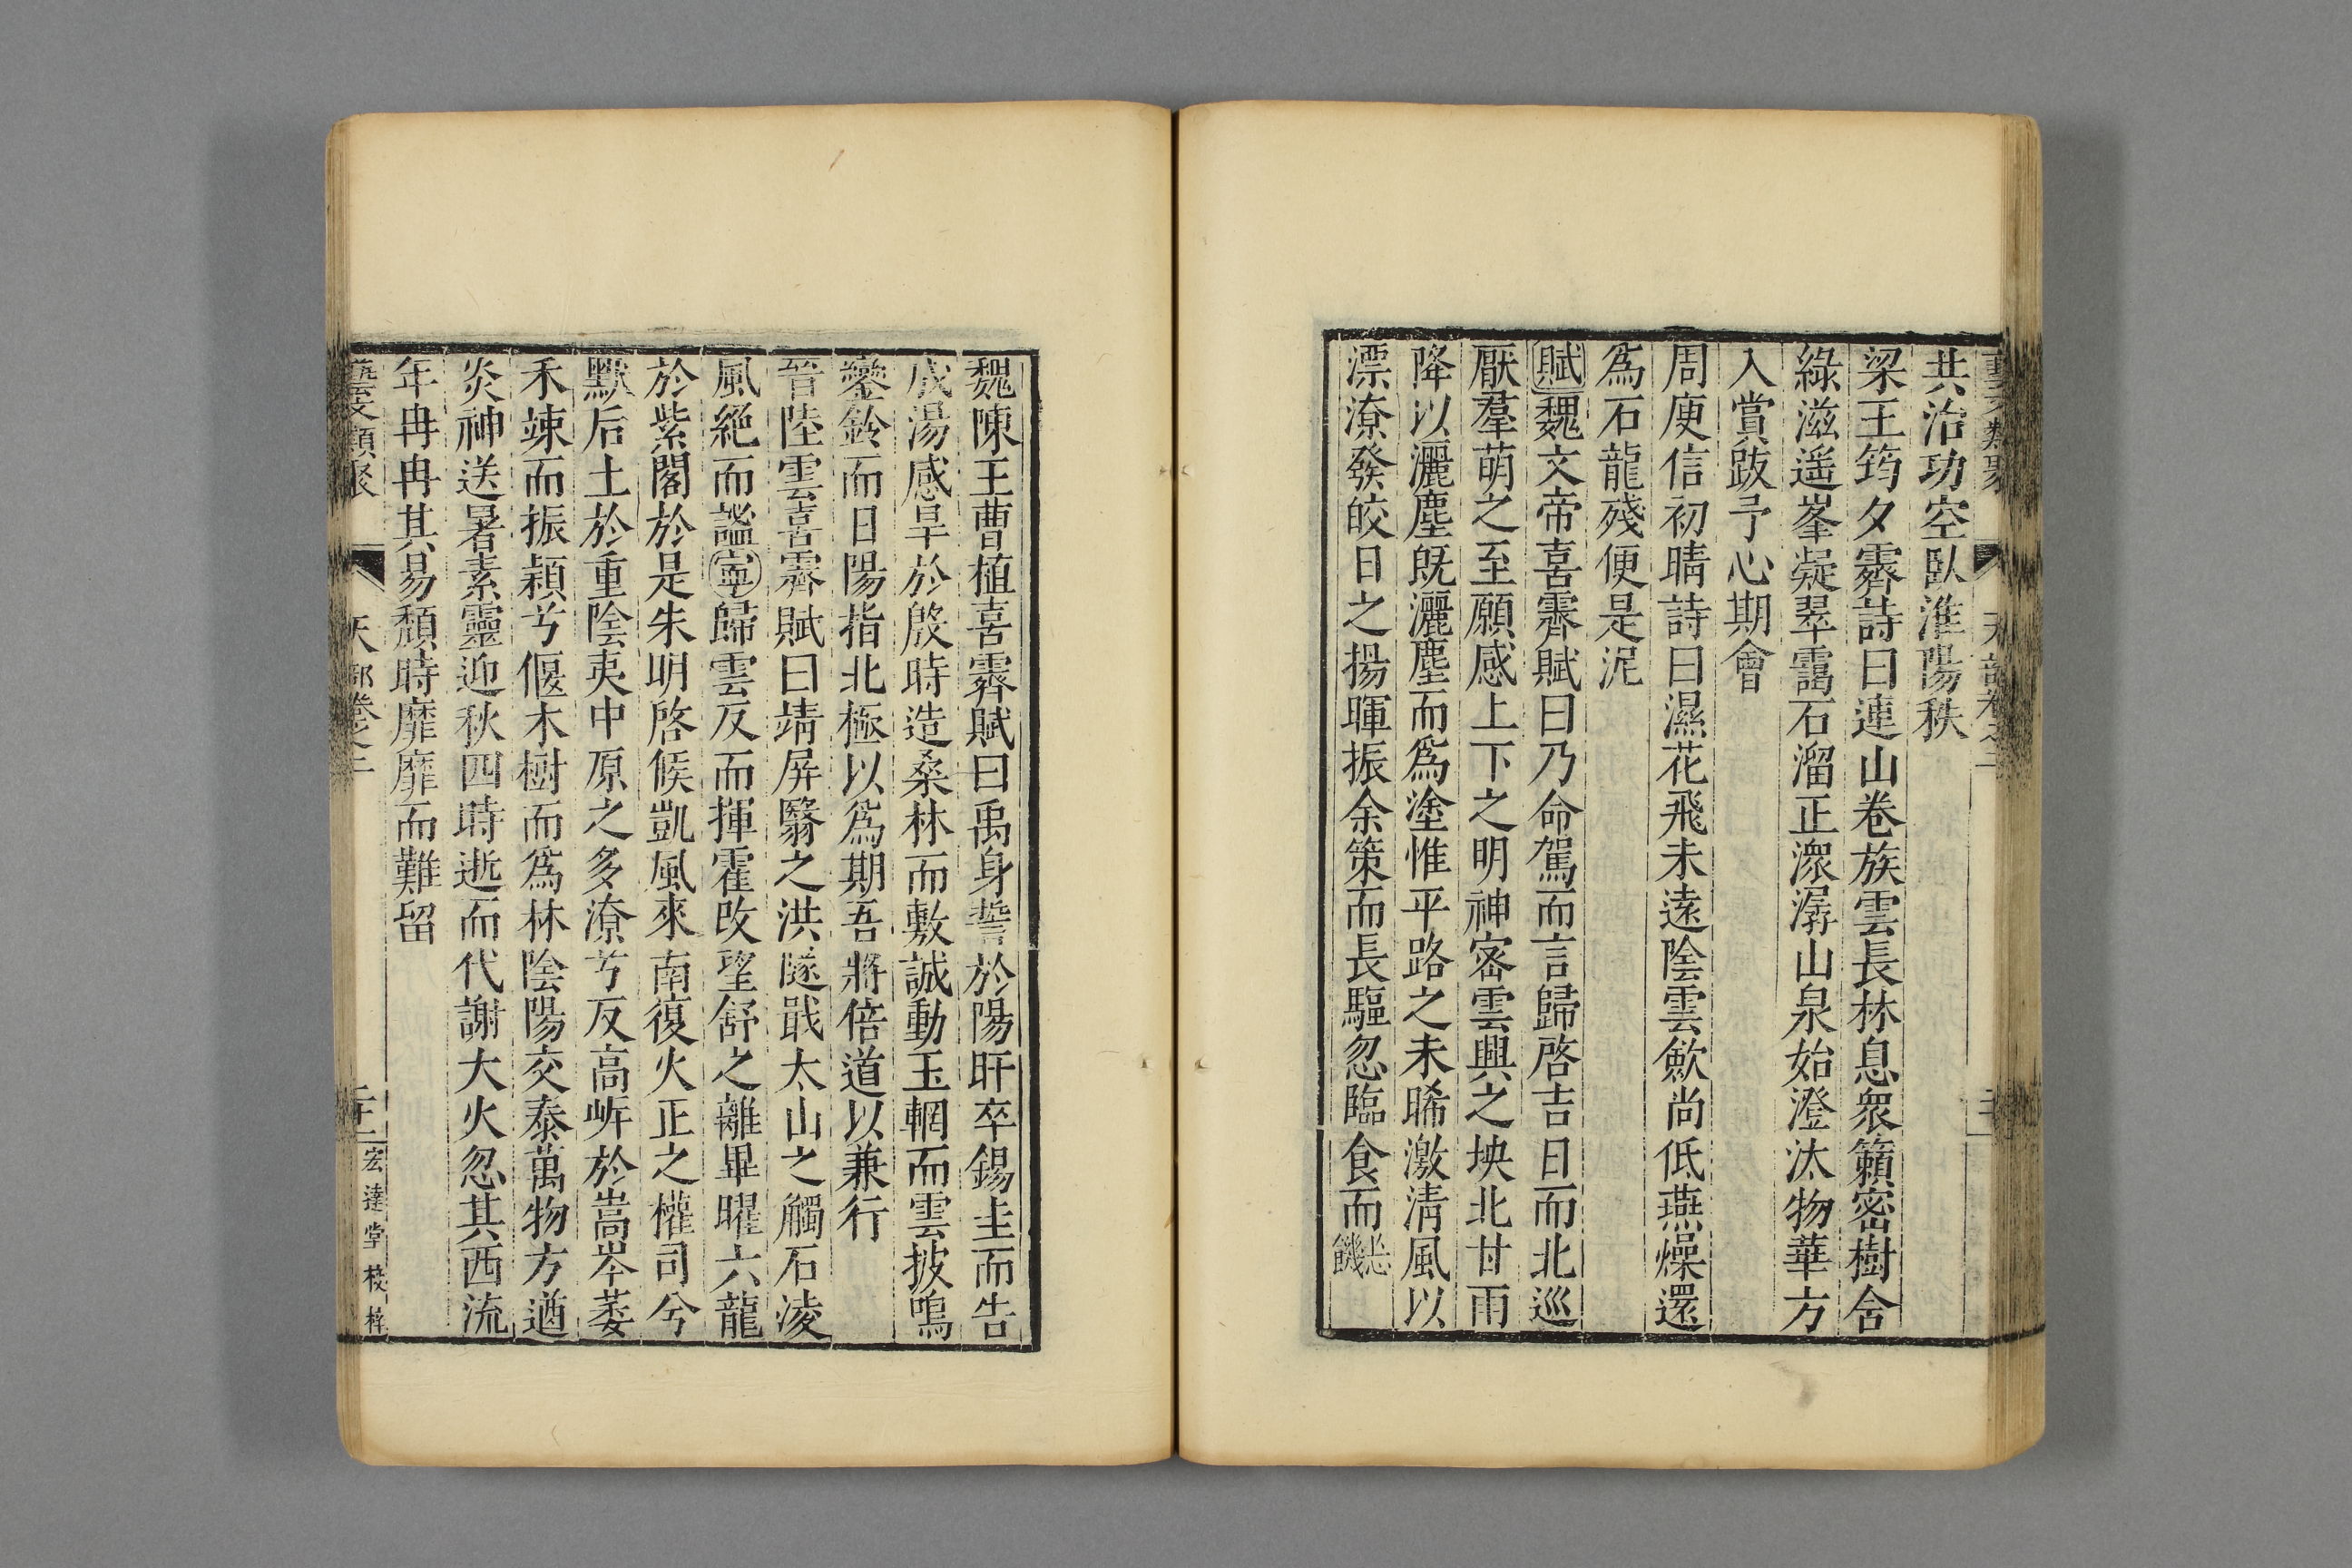 共治功空臥淮陽秩
梁王筠夕霽詩曰連山卷族雲長林息衆籟密樹含
綠滋遥峯凝翠靄石溜正潨潺山泉始澄汰物華方
入賞跂予心期會
周庾信初晴詩曰濕花飛未遠陰雲歛尚低燕燥還
為石龍殘便是泥
賦魏文帝喜霽賦曰乃命駕而言歸啓吉日而北巡
厭羣萌之至願感上下之明神宻雲興之坱北甘雨
降以灑塵旣灑塵而為塗惟平路之未晞激清風以
漂潦發皎日之揚暉振余策而長驅忽臨食而忘飢
魏陳王曹植喜霽賦曰禹身誓於陽旰卒錫圭而告
成湯感旱於殷時造桑林而敷誠動玉輞而雲披鳴
鑾鈴而日陽指北極以為期吾將倍道以兼行
晉陸雲喜霽賦曰靖屏翳之洪隧戢太山之觸石淩
風絕而謐寧歸雲反而揮霍改望舒之離畢曜六龍
於紫閣於是朱明啓候凱風來南復火正之權司兮
黙后土於重陰夷中原之多潦兮反高岸於嵩岑萎
禾竦而振穎兮偃木樹而為林陰陽交泰萬物方遒
炎神送暑素靈迎秋四時逝而代謝大火忽其西流
年冉冉其易頹時靡靡而難留
藝文類聚 天部卷之二 宏達堂校梓